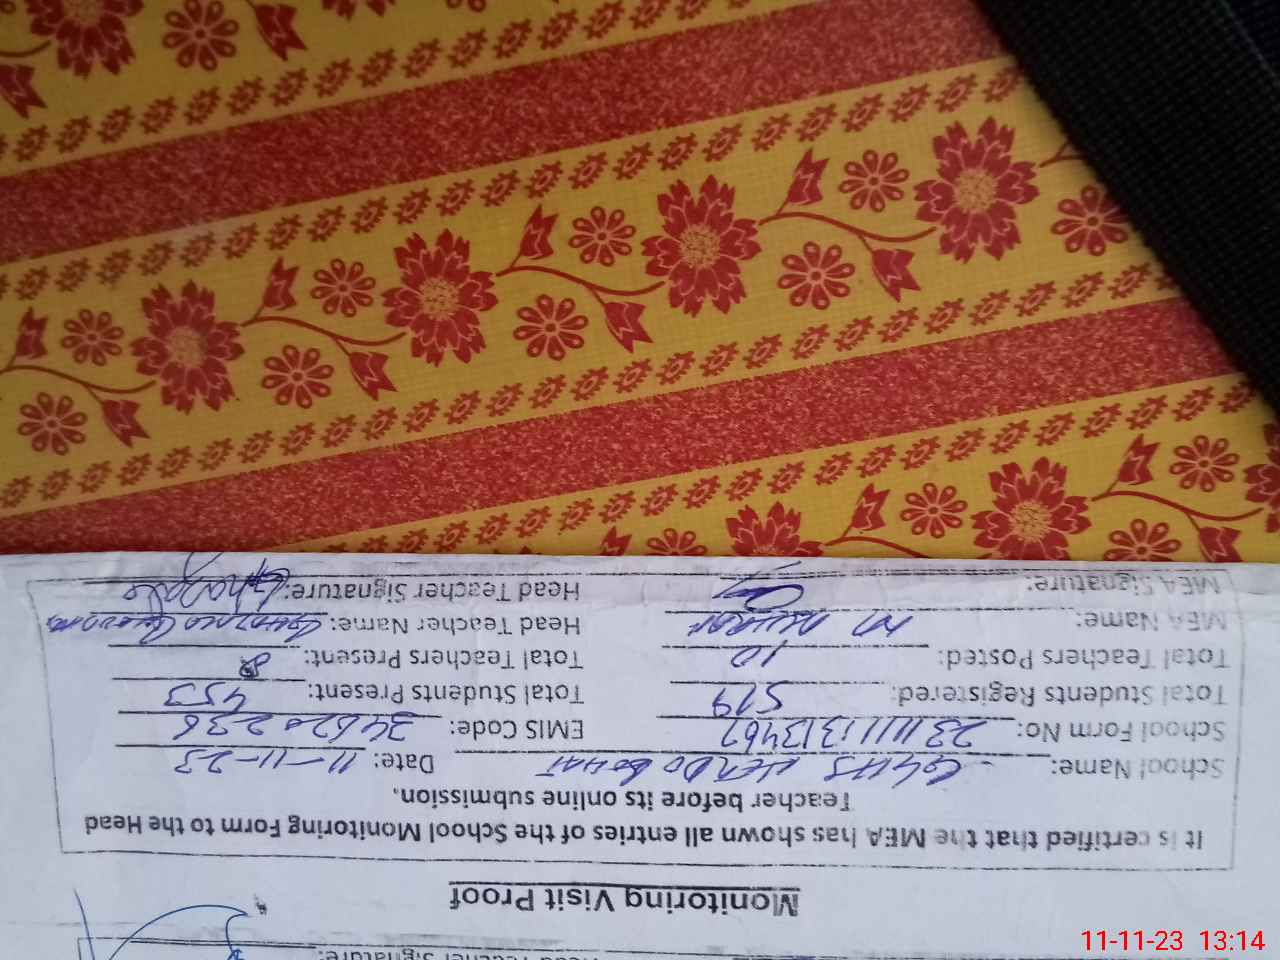 Head Teacher Signature:
Monitoring Visit Proof
It is certified that the MEA has shown all entries of the School Monitoring Form to the Head
Teacher before its online submission.
School Name: GGHS Date: 11-11-23
School Form No: EMIS Code: 34620236
Total Students Registered: 519 Total Students Present: 453
Total Teachers Posted: 10 Total Teachers Present: 8
MEA Name: Head Teacher Name:
MEA Signature: Head Teacher Signature:
11-11-23 13:14